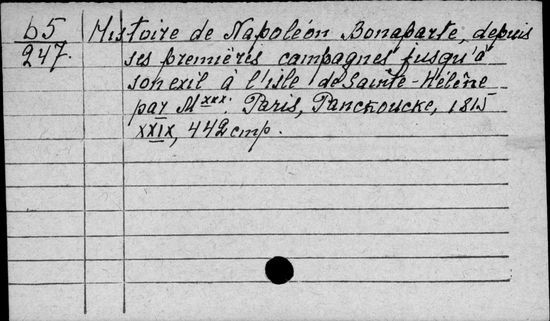 65 Histoire de Napoléon Bonaparte, depuis
247. ses premières campagnes jusqu'à
son exil à l'isle de Sainte-Hélène
par Mxxx. Paris, Panckoucke, 1815
XXIX, 442 cmp.